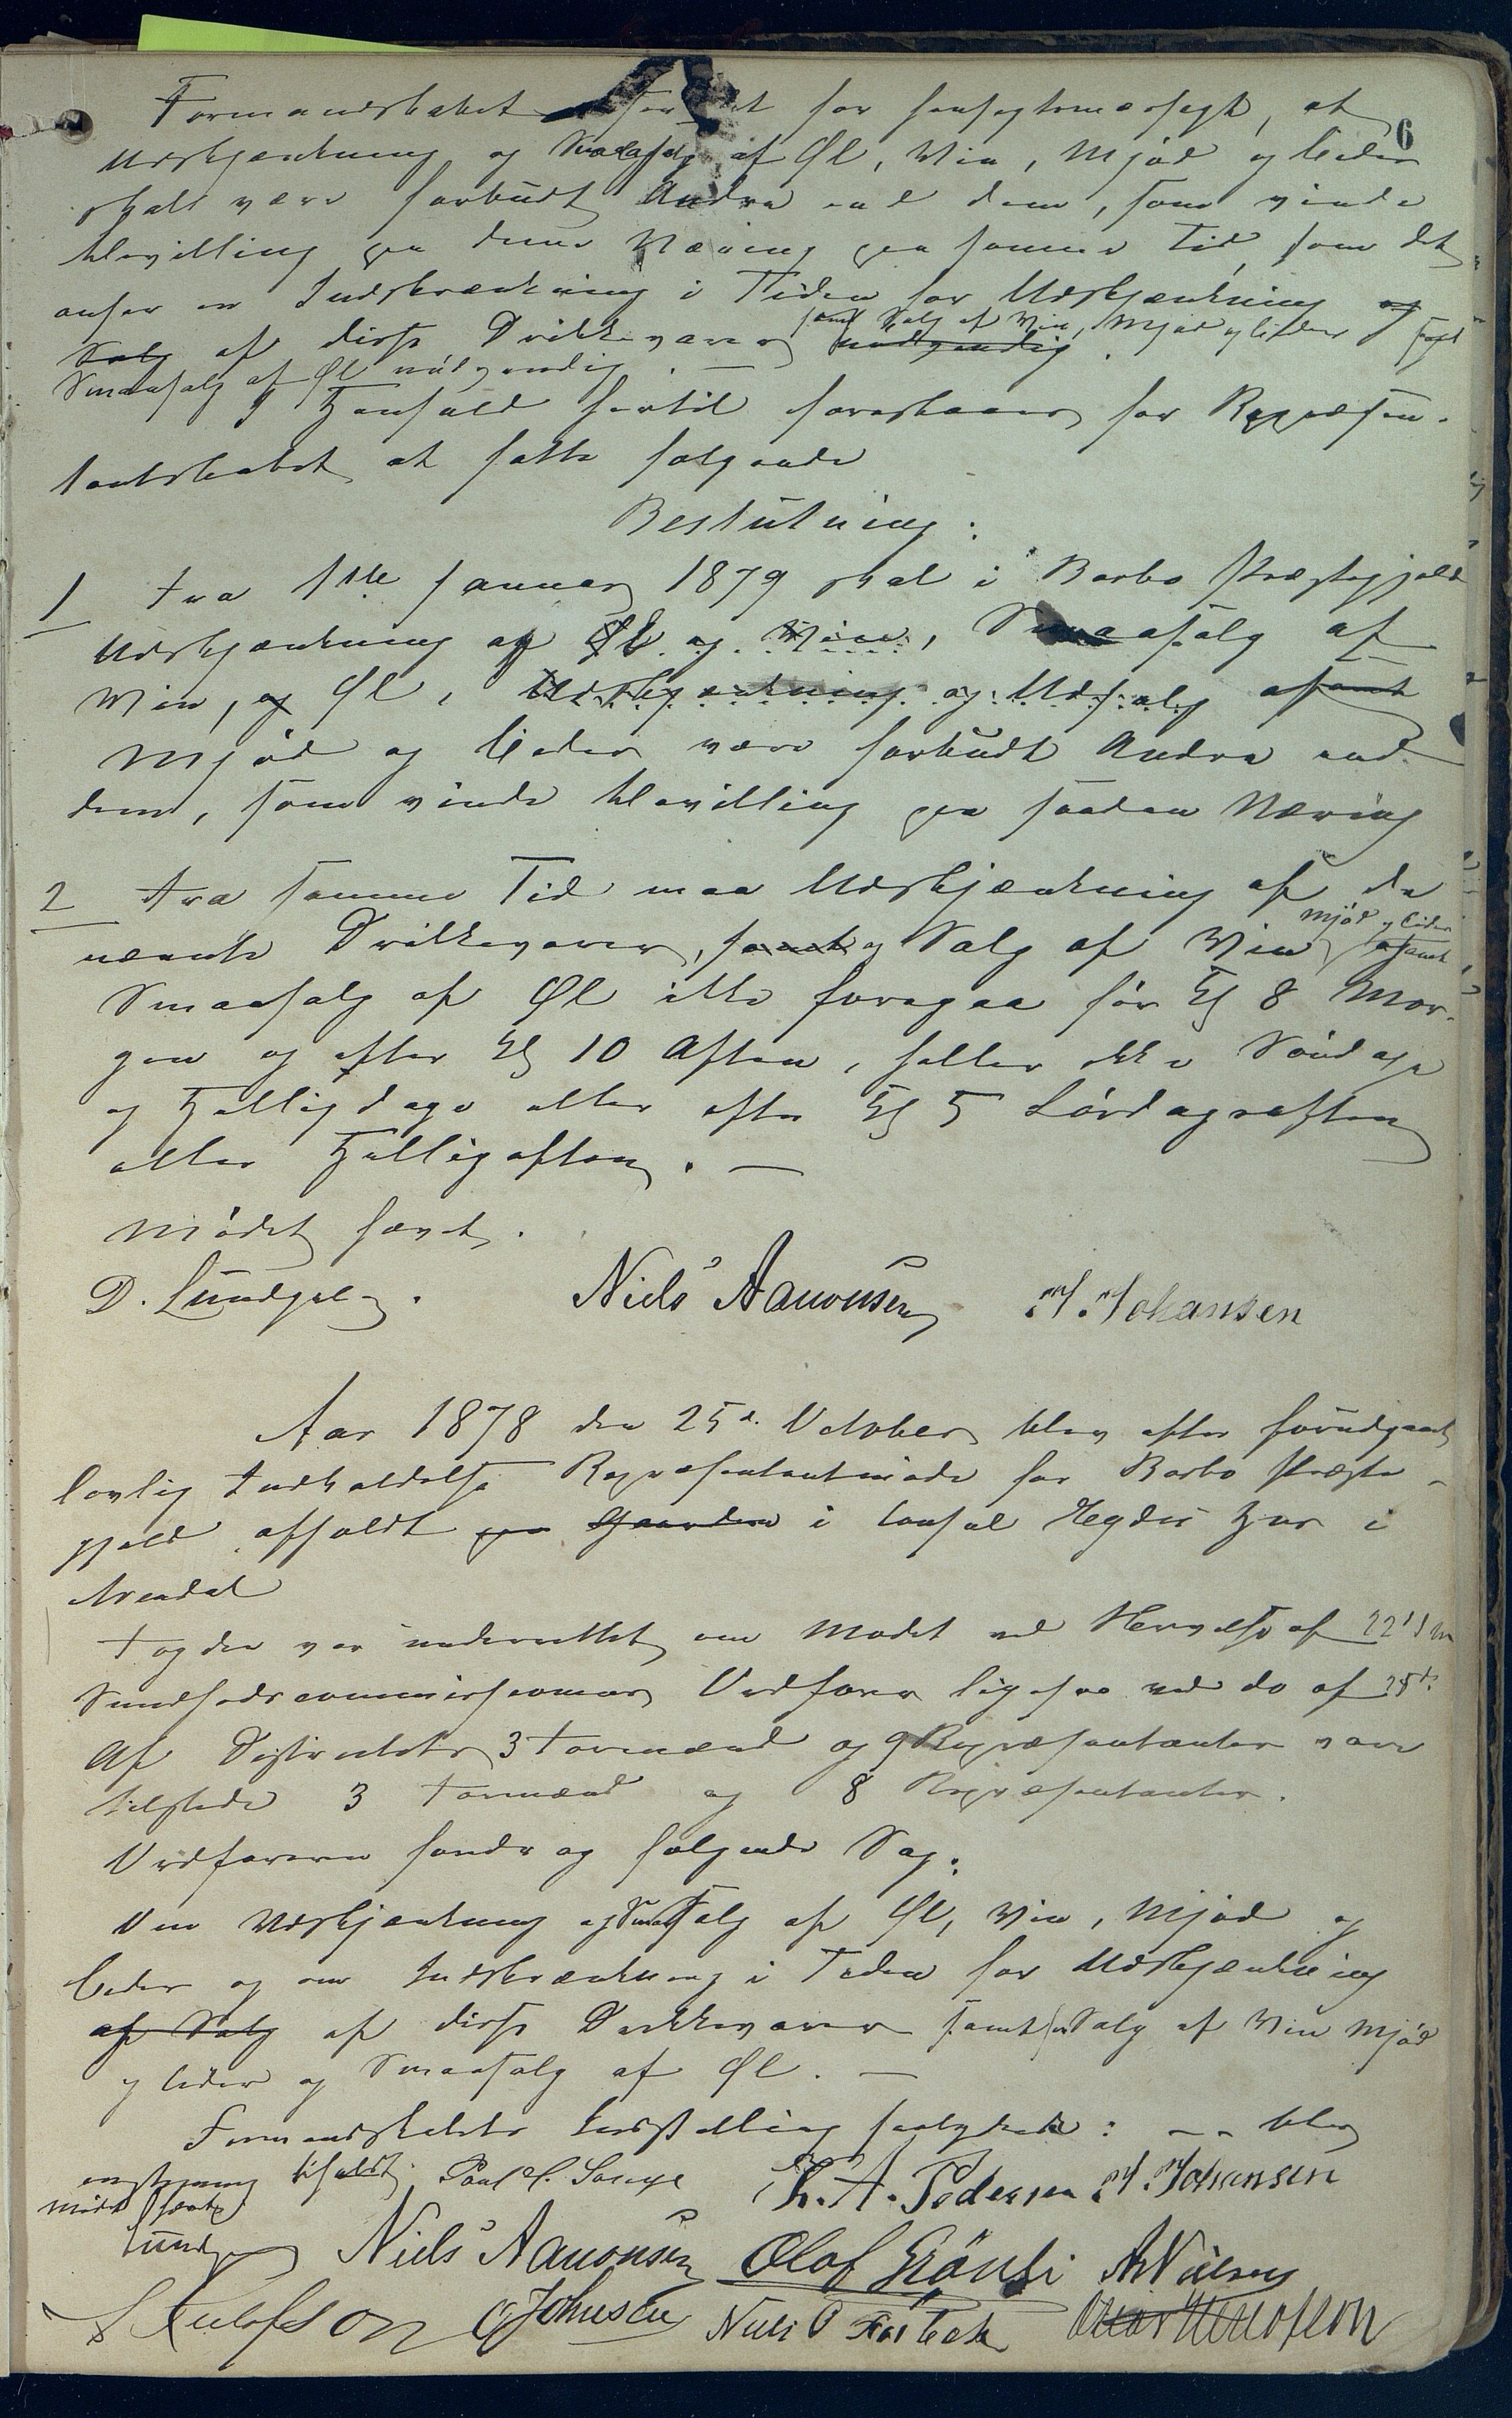 6
Formandskabet for hensigtsmæssigt, at
Udskjænkning og Smaasalg af Øl, Viin, Mjød og Cider
skal være forbudt Andre end dem, som vinde
Bevilling paa denne Næring paa samme Tid, som det
anser en Indskrænkning i Tiden for Udskjænkning og
samt Salg af Viin, Mjød og Cider samt
Salg af disse Drikkevarer nødvendig.
Smaasalg af Øl nødvendig. —
I Henhold hertil foreslaaes for Repræsen-
tantskabet at fatte følgende
Beslutning:
1 Fra 1ste Januar 1879 skal i Barbo Præstegjeld
Udskjænkning af Øl og Viin, Smaasalg af
Viin, og Øl, Udskjænkning og Udsalg af samt
Mjød og Cider være forbudt Andre end
dem, som vinde Bevilling paa saadan Næring
2 Fra samme Tid maa Udskjænkning af de
Mjød og Cider
nævnte Drikkevarer, samt og Salg af Viin samt
Smaasalg af Øl ikke foregaa før Kl 8 Mor-
gen og efter Kl 10 Aften, heller ikke Søndage
og Helligdage eller efter Kl 5 Lørdagsaften
eller Helligaften. —
Mødet hævet.
D. Lundgel Niels Aanonsen J. Johansen
Aar 1878 den 25de October blev efter forudgaaet
lovlig Indkaldelse Repræsentantmøde for Barbo Præste-
gjeld afholdt paa Gaarden i Consul Kegdes Hus i
Arendal
Fogden var underrettet om Mødet ved Skrivelse af 22
Sundhedscommissionens Ordfører ligesaa ved do af 25de
Af Distriktets 3 Formænd og 9 Repræsentanter vare
tilstede 3 Formænd og 8 Repræsentanter.
Ordføreren foredrog følgende Sag:
Om Udskjænkning og Smaasalg af Øl, Viin, Mjød og
Cider og om Indskrænkning i Tiden for Udskjænkning
af Salg af disse Drikkevarer samt Salg af Viin Mjød
og Cider og Smaasalg af Øl. —
Formandskabets Indstilling saalydende: — — blev
enstemmig bifaldt. Paul C. K. A. Pedersen J. Johansen
Mødet hævet
Lundg Niels Aanonsen Olaf A Nielsen
Johnsen Niels O